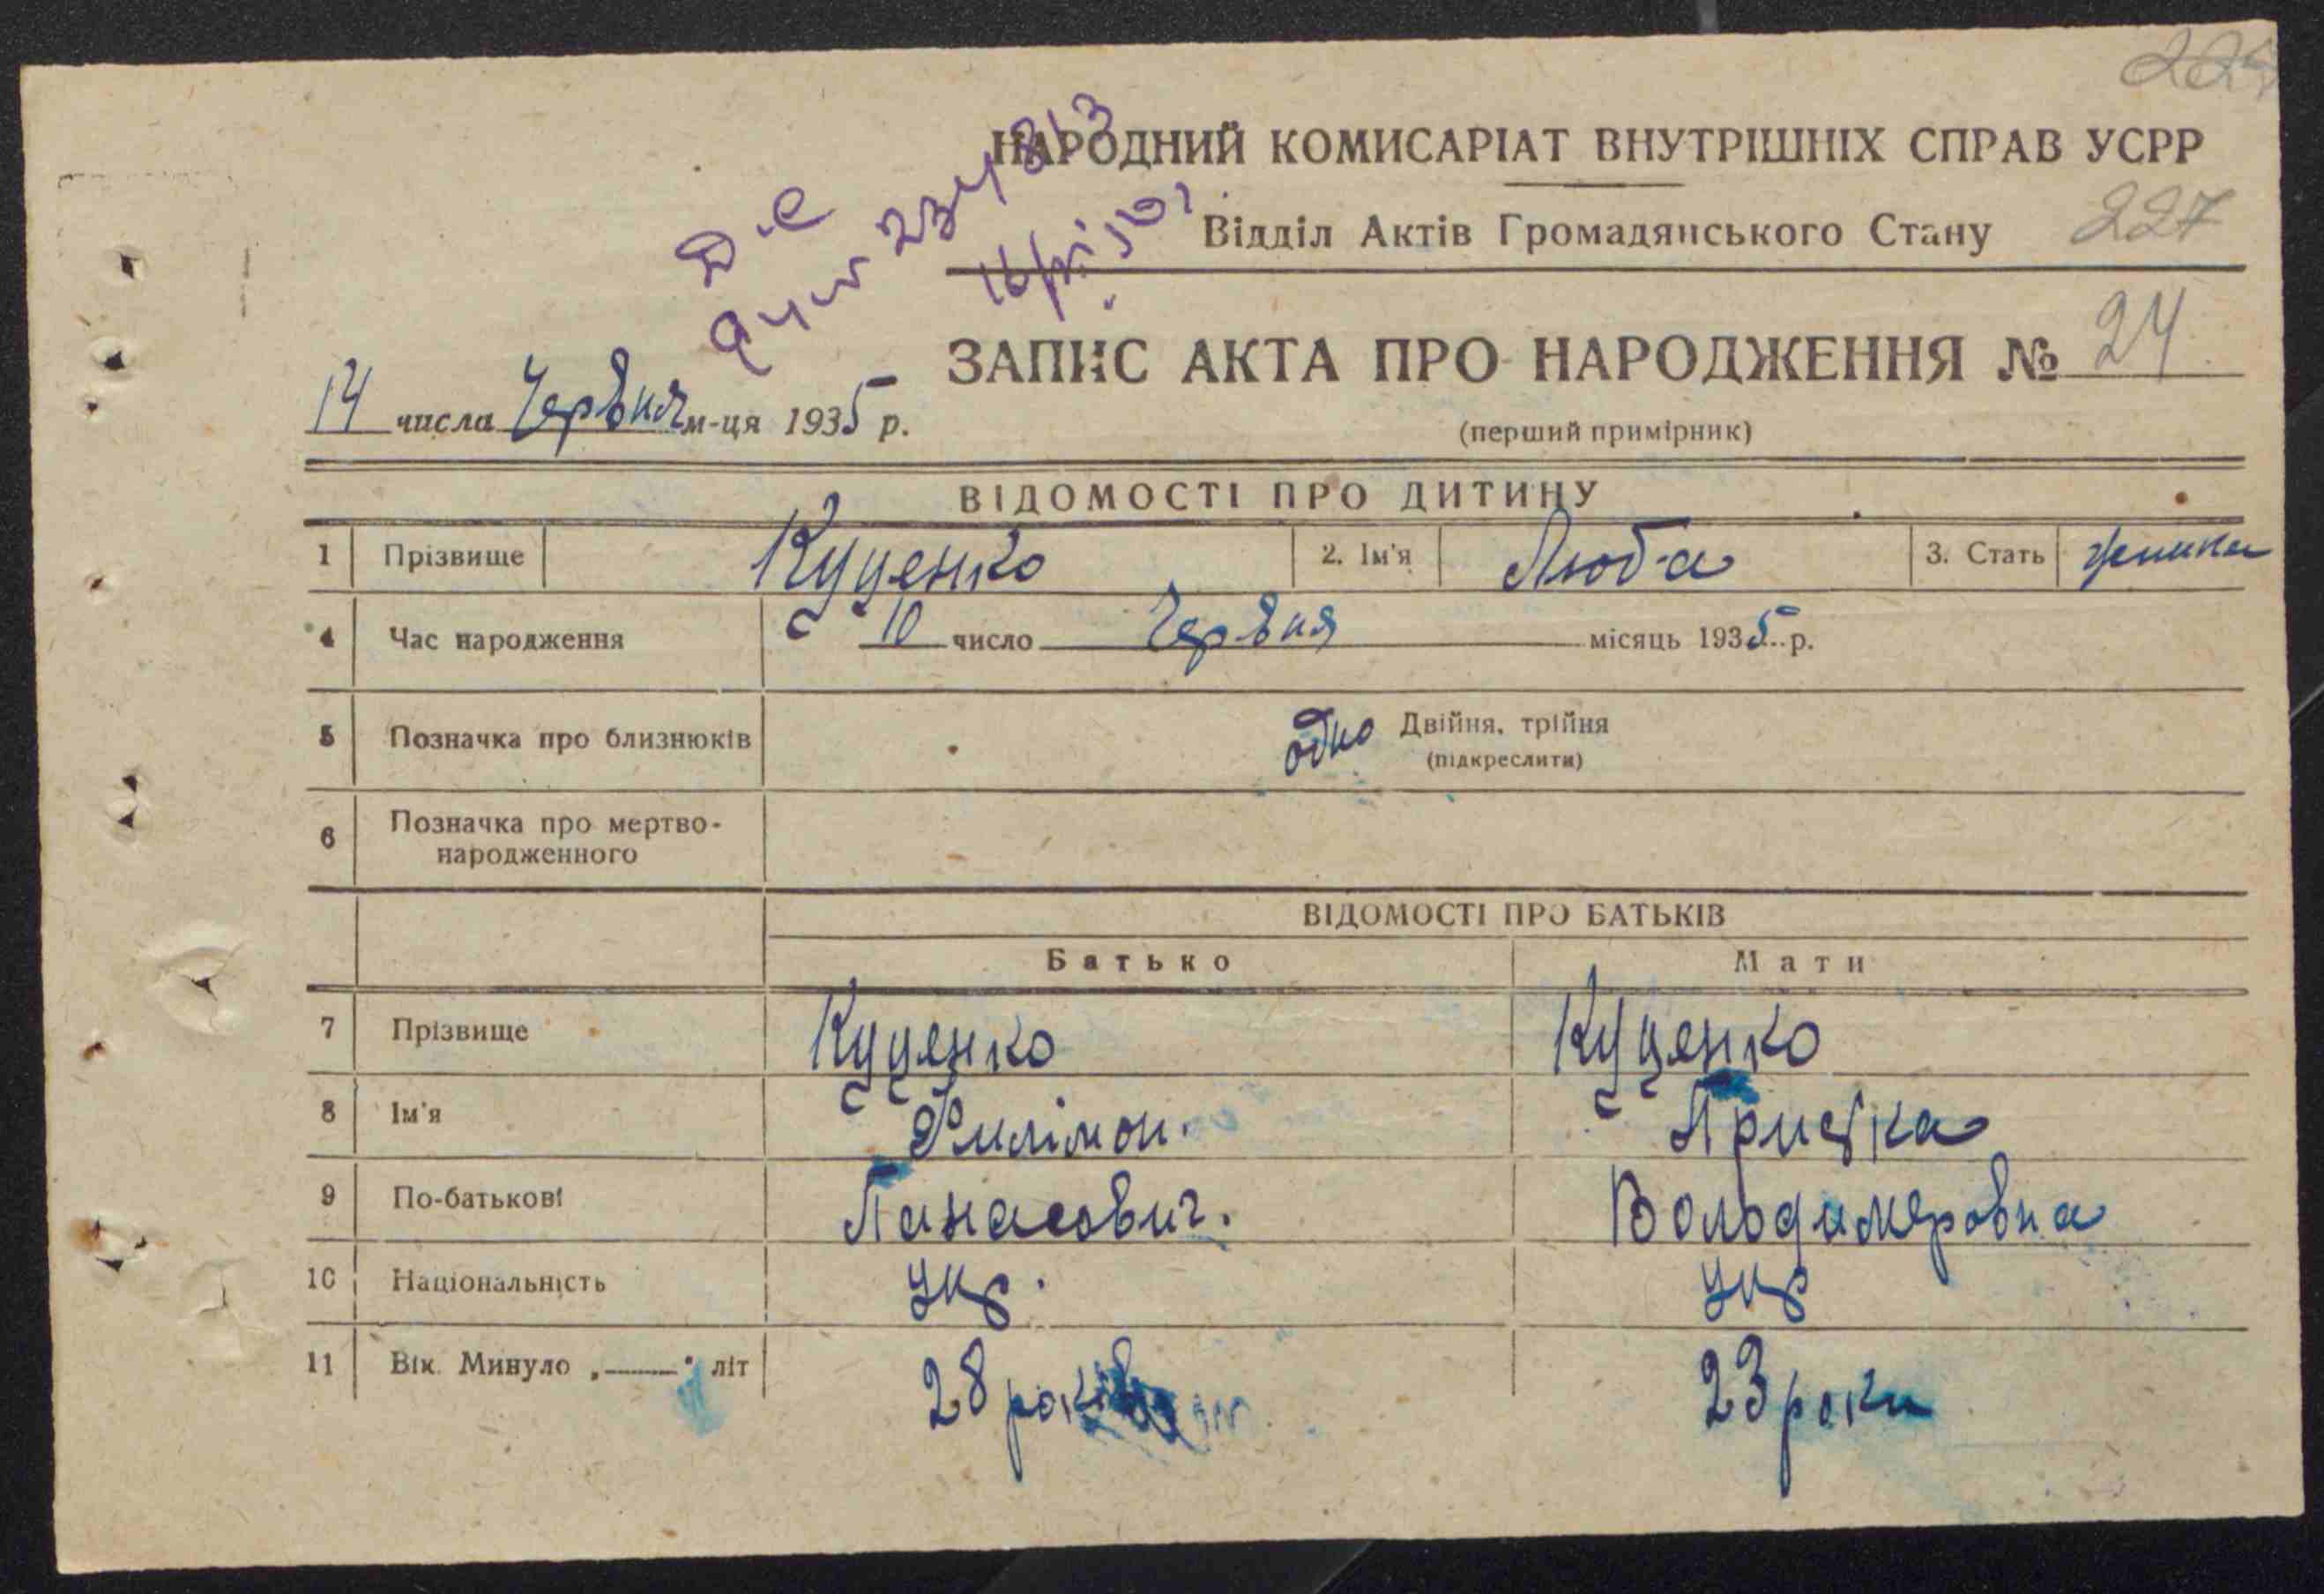 227
НАРОДНИЙ КОМИСАРІАТ ВНУТРІШНІХ СПРАВ УСРР
Відділ Актів Громадянського Стану
ЗАПИС АКТА ПРО НАРОДЖЕННЯ № 24
14 числа Червня м-ця 1935 р.
(перший примірник)
ВІДОМОСТІ ПРО ДИТИНУ
1 Прізвище Куценко 2. Ім'я Люба 3. Стать
4 Час народження 10 число Червня місяць 1935 р.
5 Позначка про близнюків одно Двійня, трійня
(підкреслити)
6 Позначка про мертво-
народженного
ВІДОМОСТІ ПРО БАТЬКІВ
Батько Мати
7 Прізвище Куценко Куценко
8 Ім'я Филімон.
9 По-батькові Панасович. Володимеровна
10 Національність Укр. Укр
11 Вік. Минуло „ " літ 28 років 23 роки